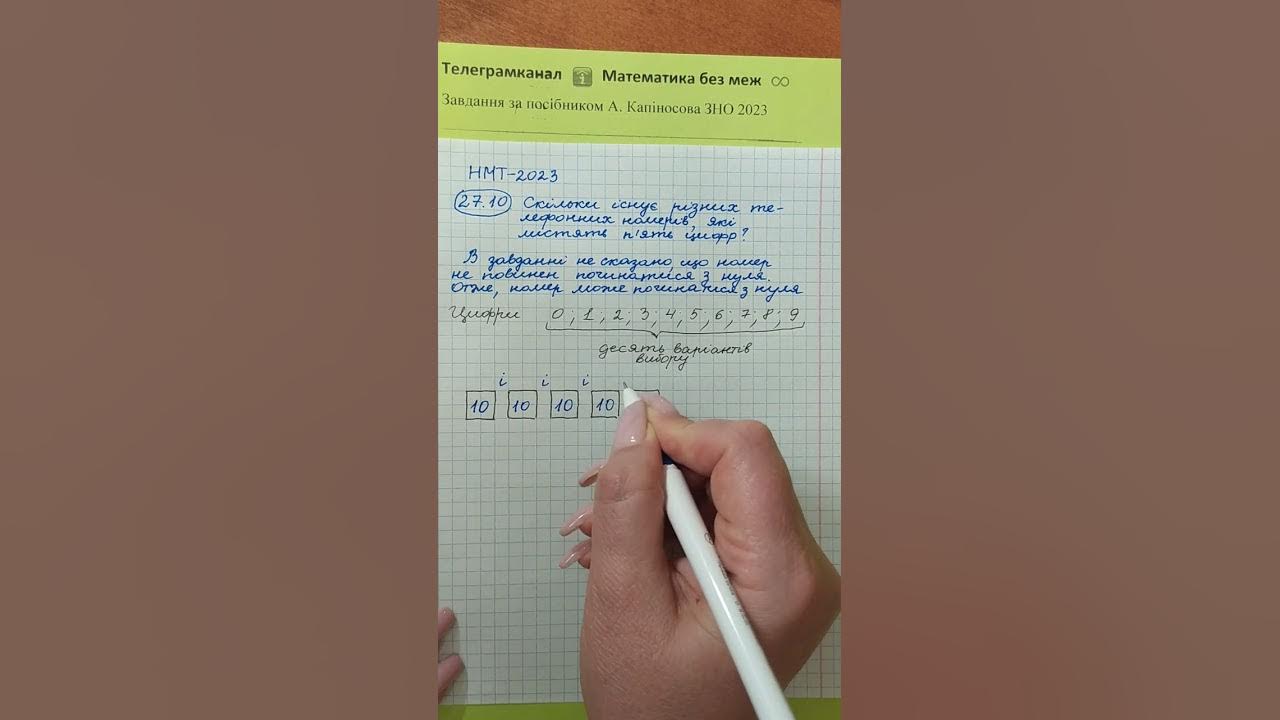 Телеграмканал Математика без меж ∞
Завдання за посібником А. Капіносова ЗНО 2023
НМТ-2023
27.10 Скільки існує різних те-
лефонних номерів, які
містять п'ять цифр?
В завданні не сказано що номер
не повинен починатися з нуля.
Отже, номер може починатися з нуля
Цифри 0; 1; 2; 3; 4; 5; 6; 7; 8; 9
десять варіантів
вибору
і і і
10 10 10 10